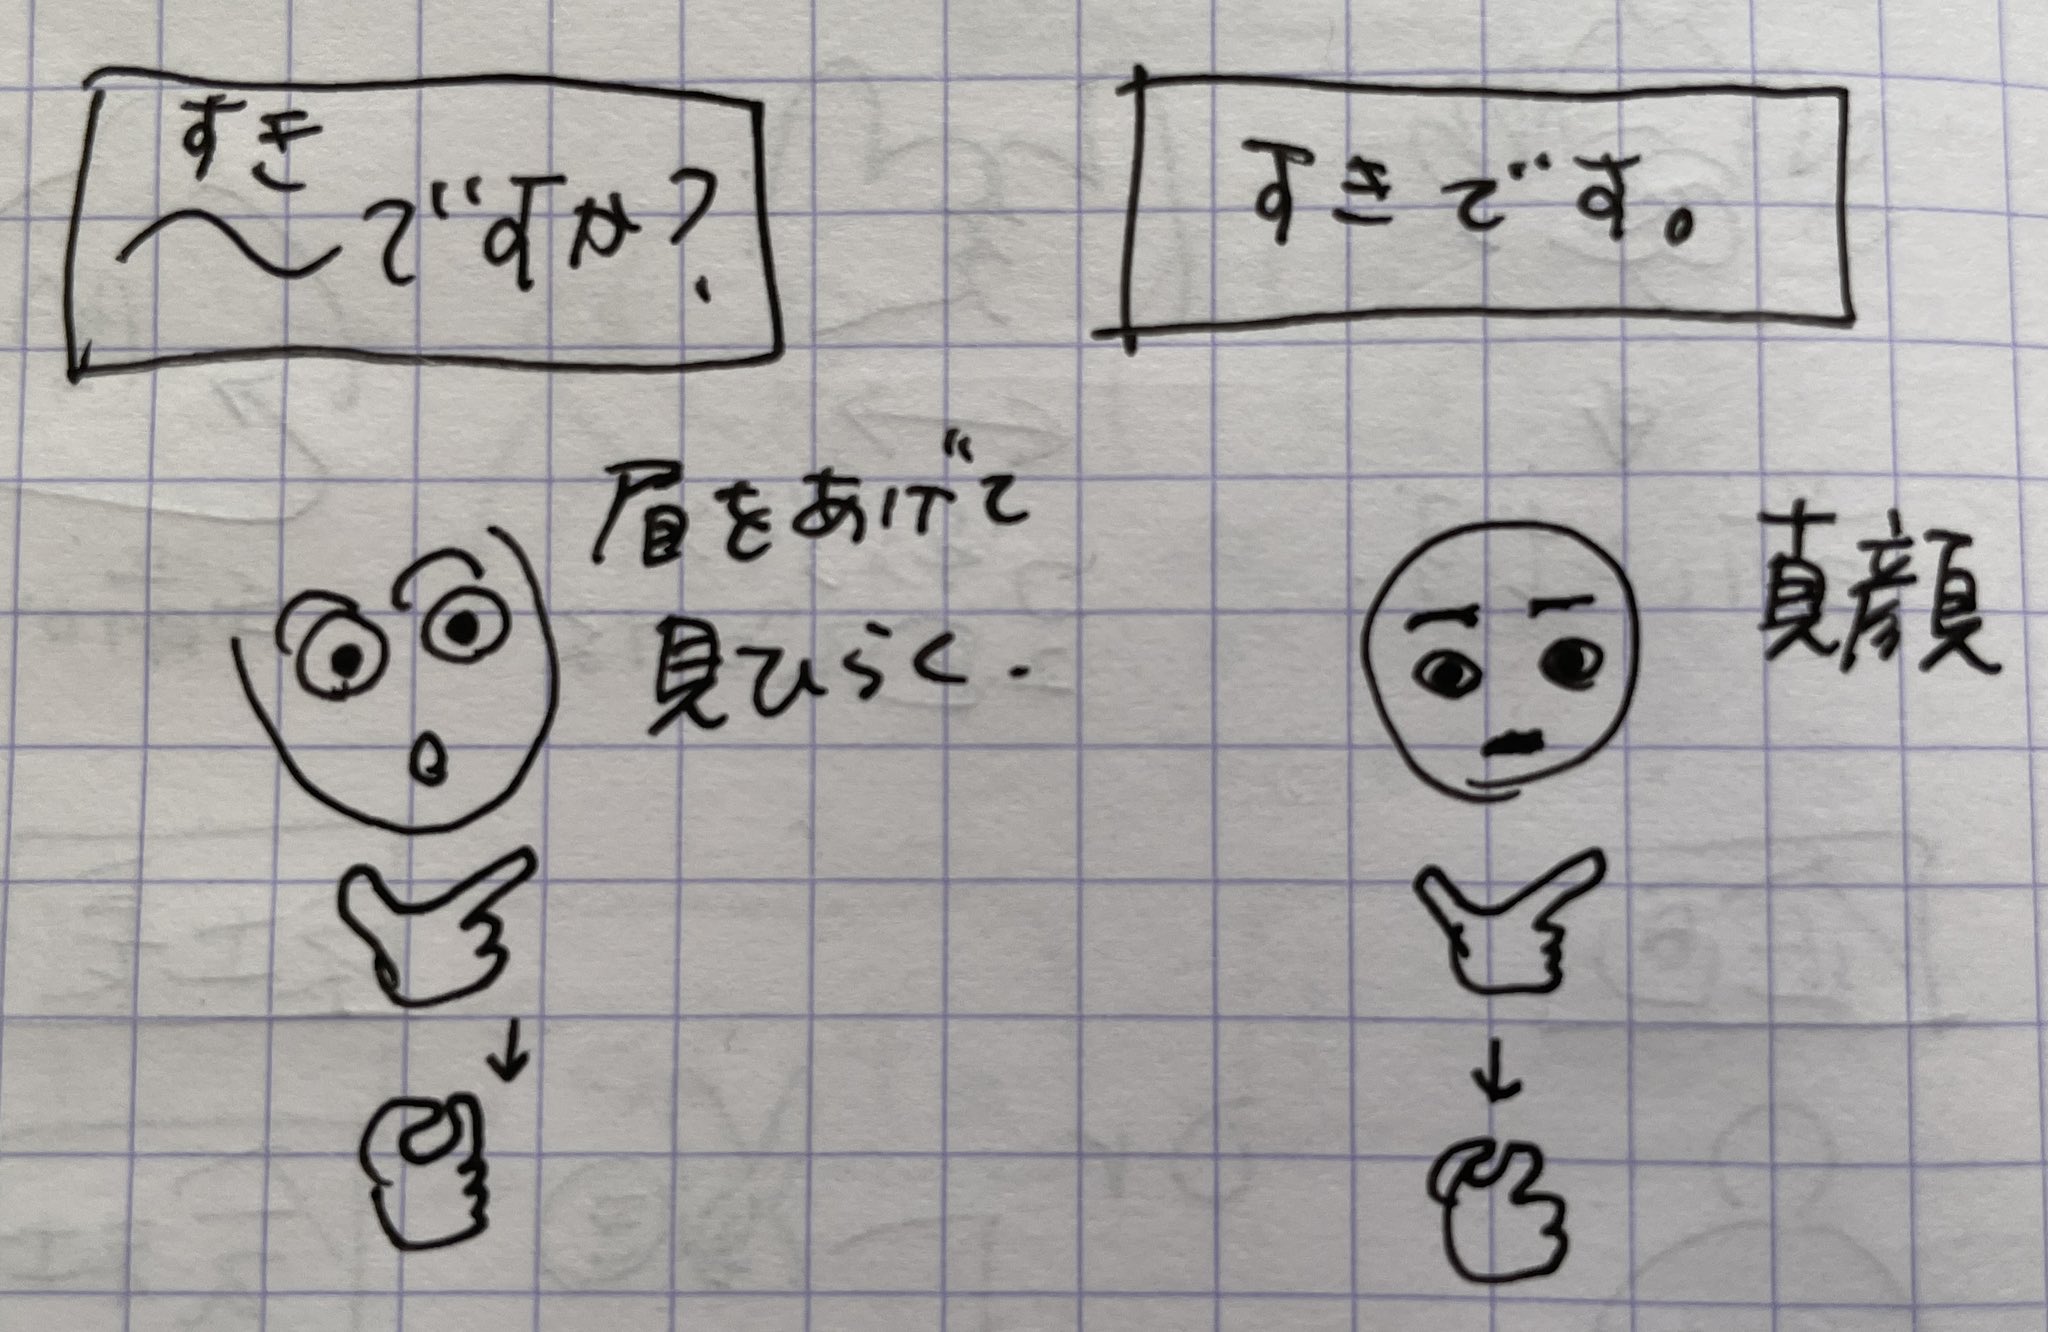 すき
〜ですか？
すきです。
眉をあげて
見ひらく.
真顔